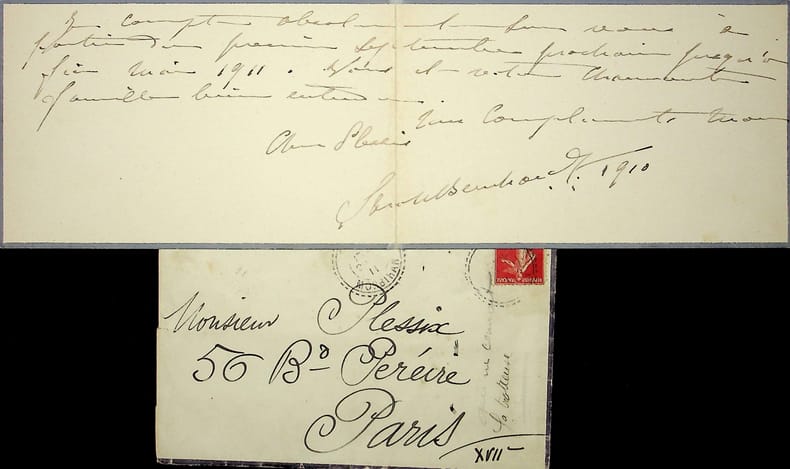 Je compte absolument sur vous à
partir du premier Septembre prochain jusqu'à
fin Mai 1911. Vous et votre charmante
famille bien entendu
Mille Compliments mon
Cher Plessix
Sarah Bernhardt. 1910
Monsieur Plessix
56 Bd Péreire
Paris
XVII